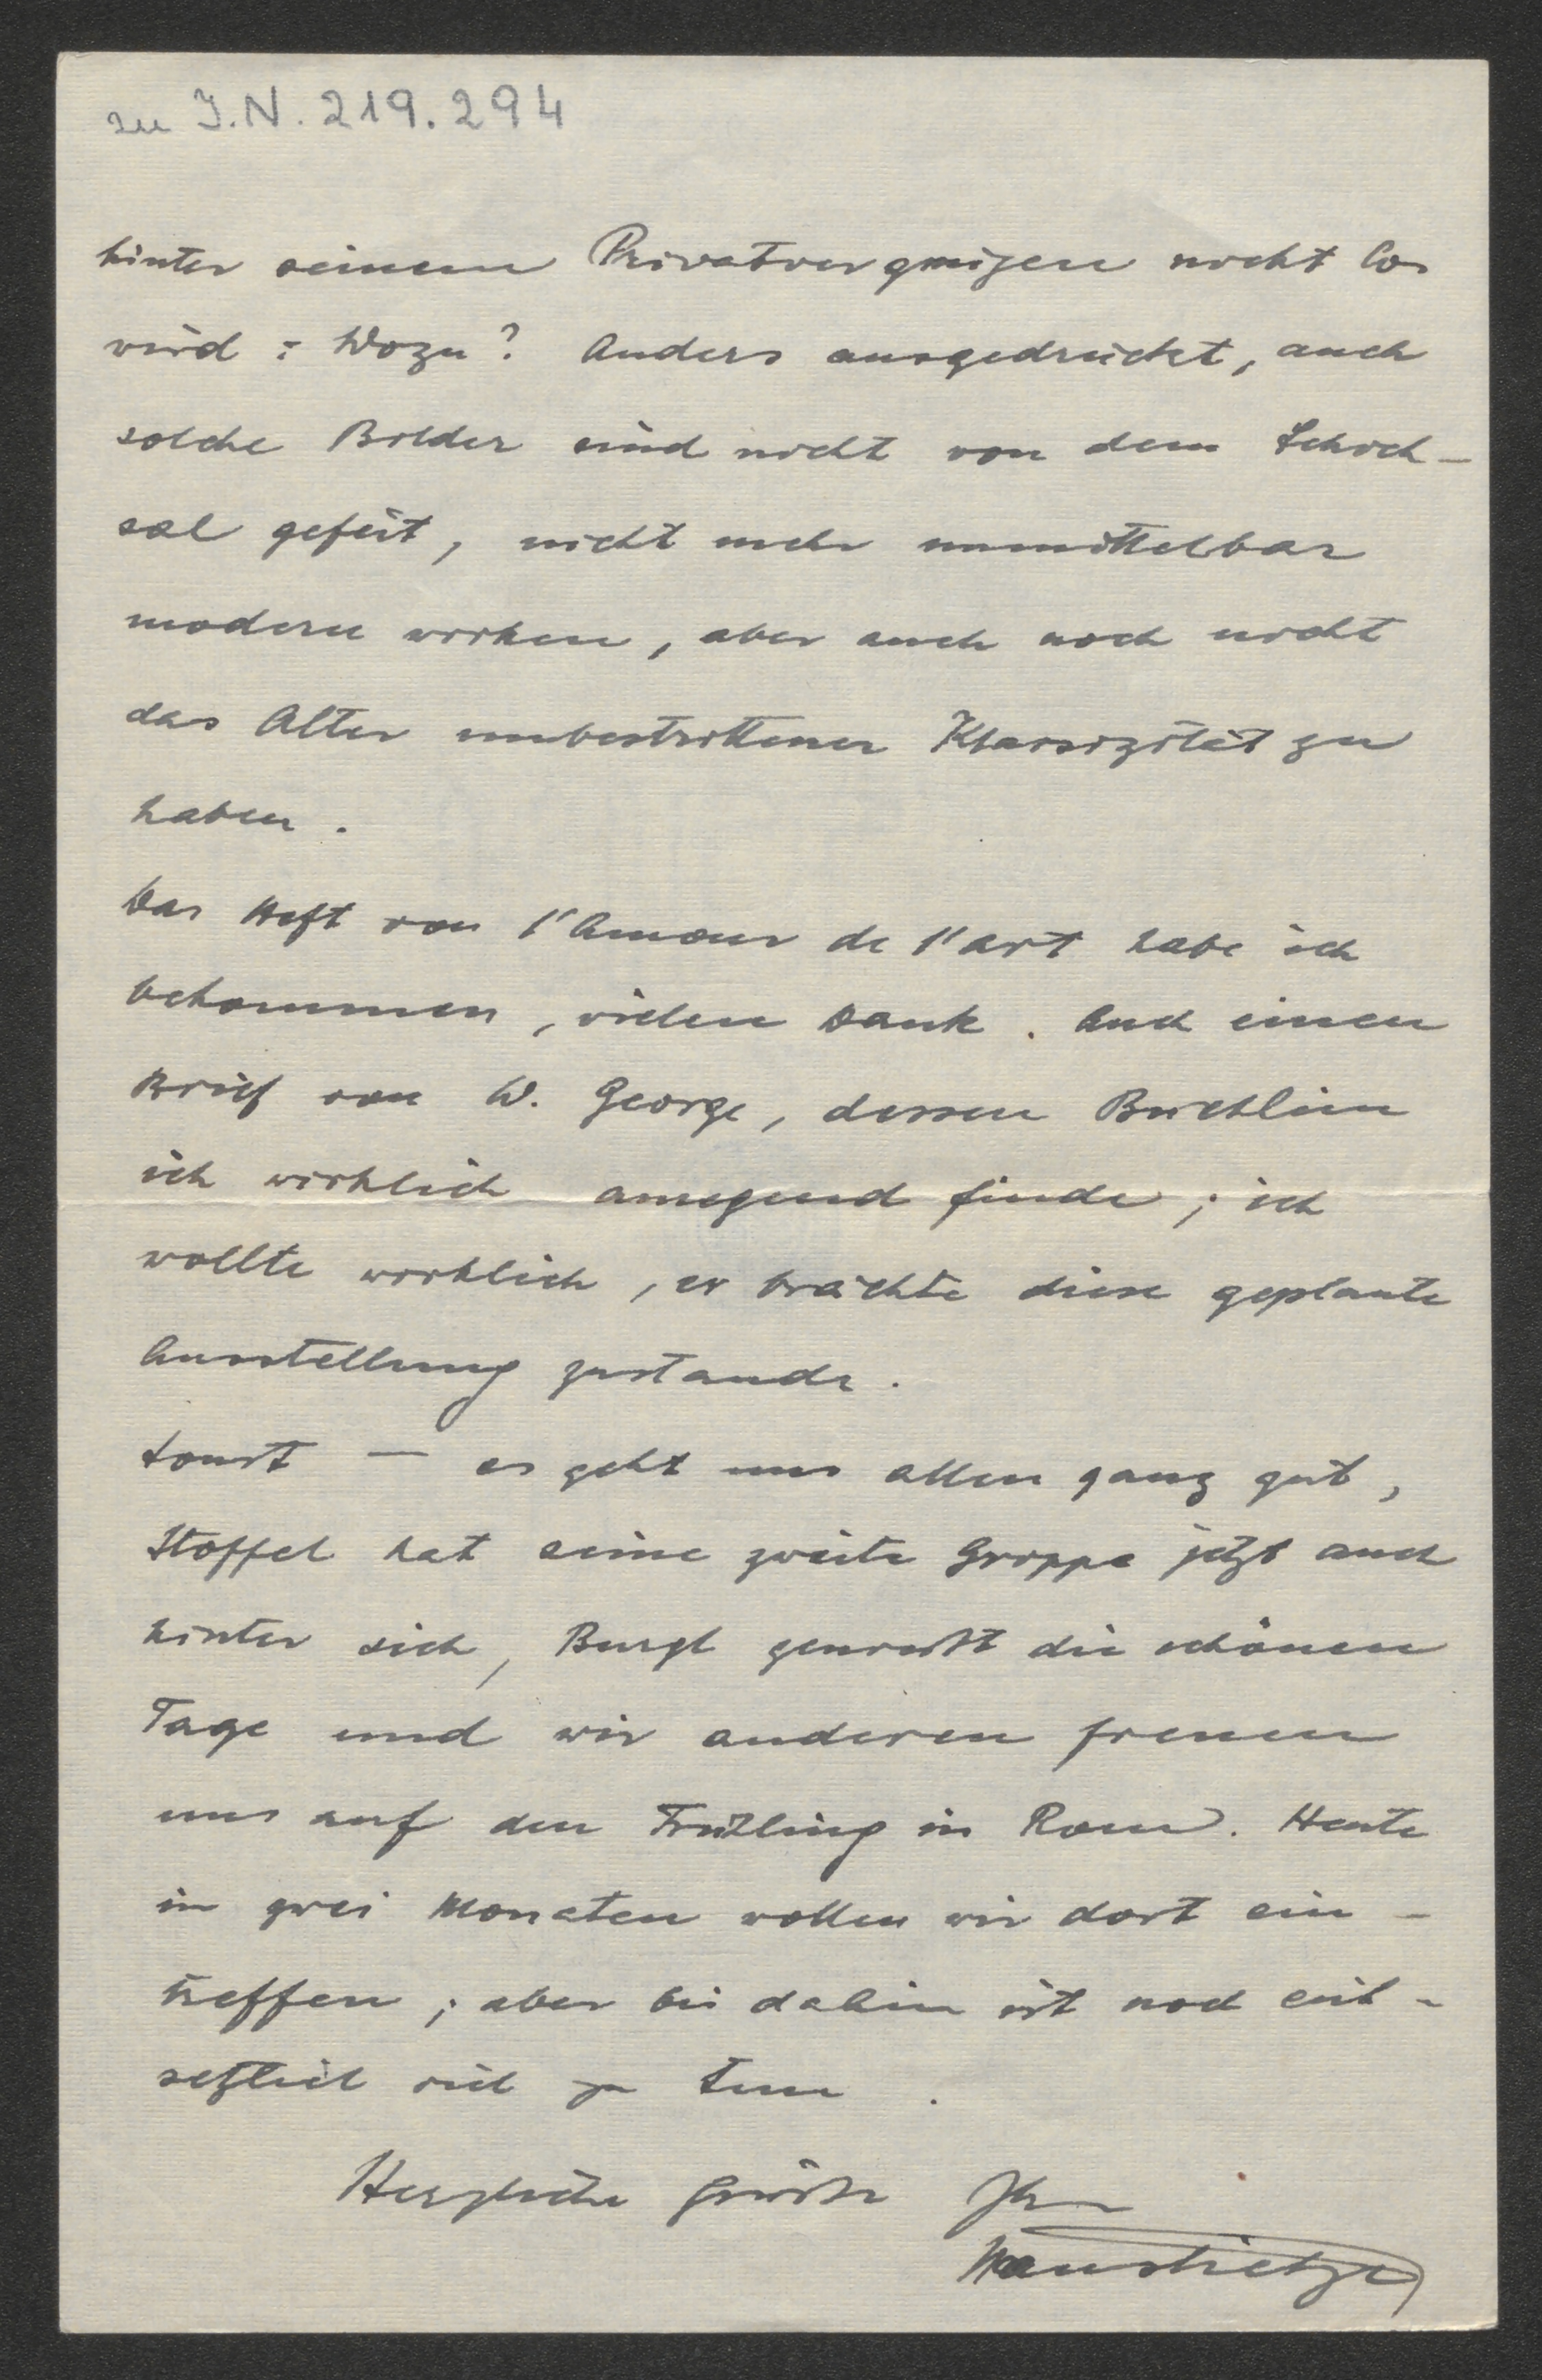 zu I.N. 219.294
hinter seinem Privatvergnügen nicht los
wird: Wozu? Anders ausgedrückt, auch
solche Bilder sind nicht von dem Schick-
sal gefeit, nicht mehr unmittelbar
modern wirken, aber auch noch nicht
das Alter unbestrittener Klassizität zu
haben.
Das Heft von l'Amour de l'art habe ich
bekommen, vielen Dank. Auch einen
Brief von W. George, dessen Büchlein
ich wirklich anregend finde; ich
wollte wirklich, er brächte diese geplante
Ausstellung zustande.
Sonst — es geht uns allen ganz gut,
Stoffel hat seine zweite Grippe jetzt auch
hinter sich, Burgl genießt die schönen
Tage und wir anderen freuen
uns auf den Frühling in Rom. Heute
in zwei Monaten wollen wir dort ein-
treffen; aber bis dahin ist noch ent-
setzlich viel zu tun.
Herzliche Grüße Ihr
Hans Tietze